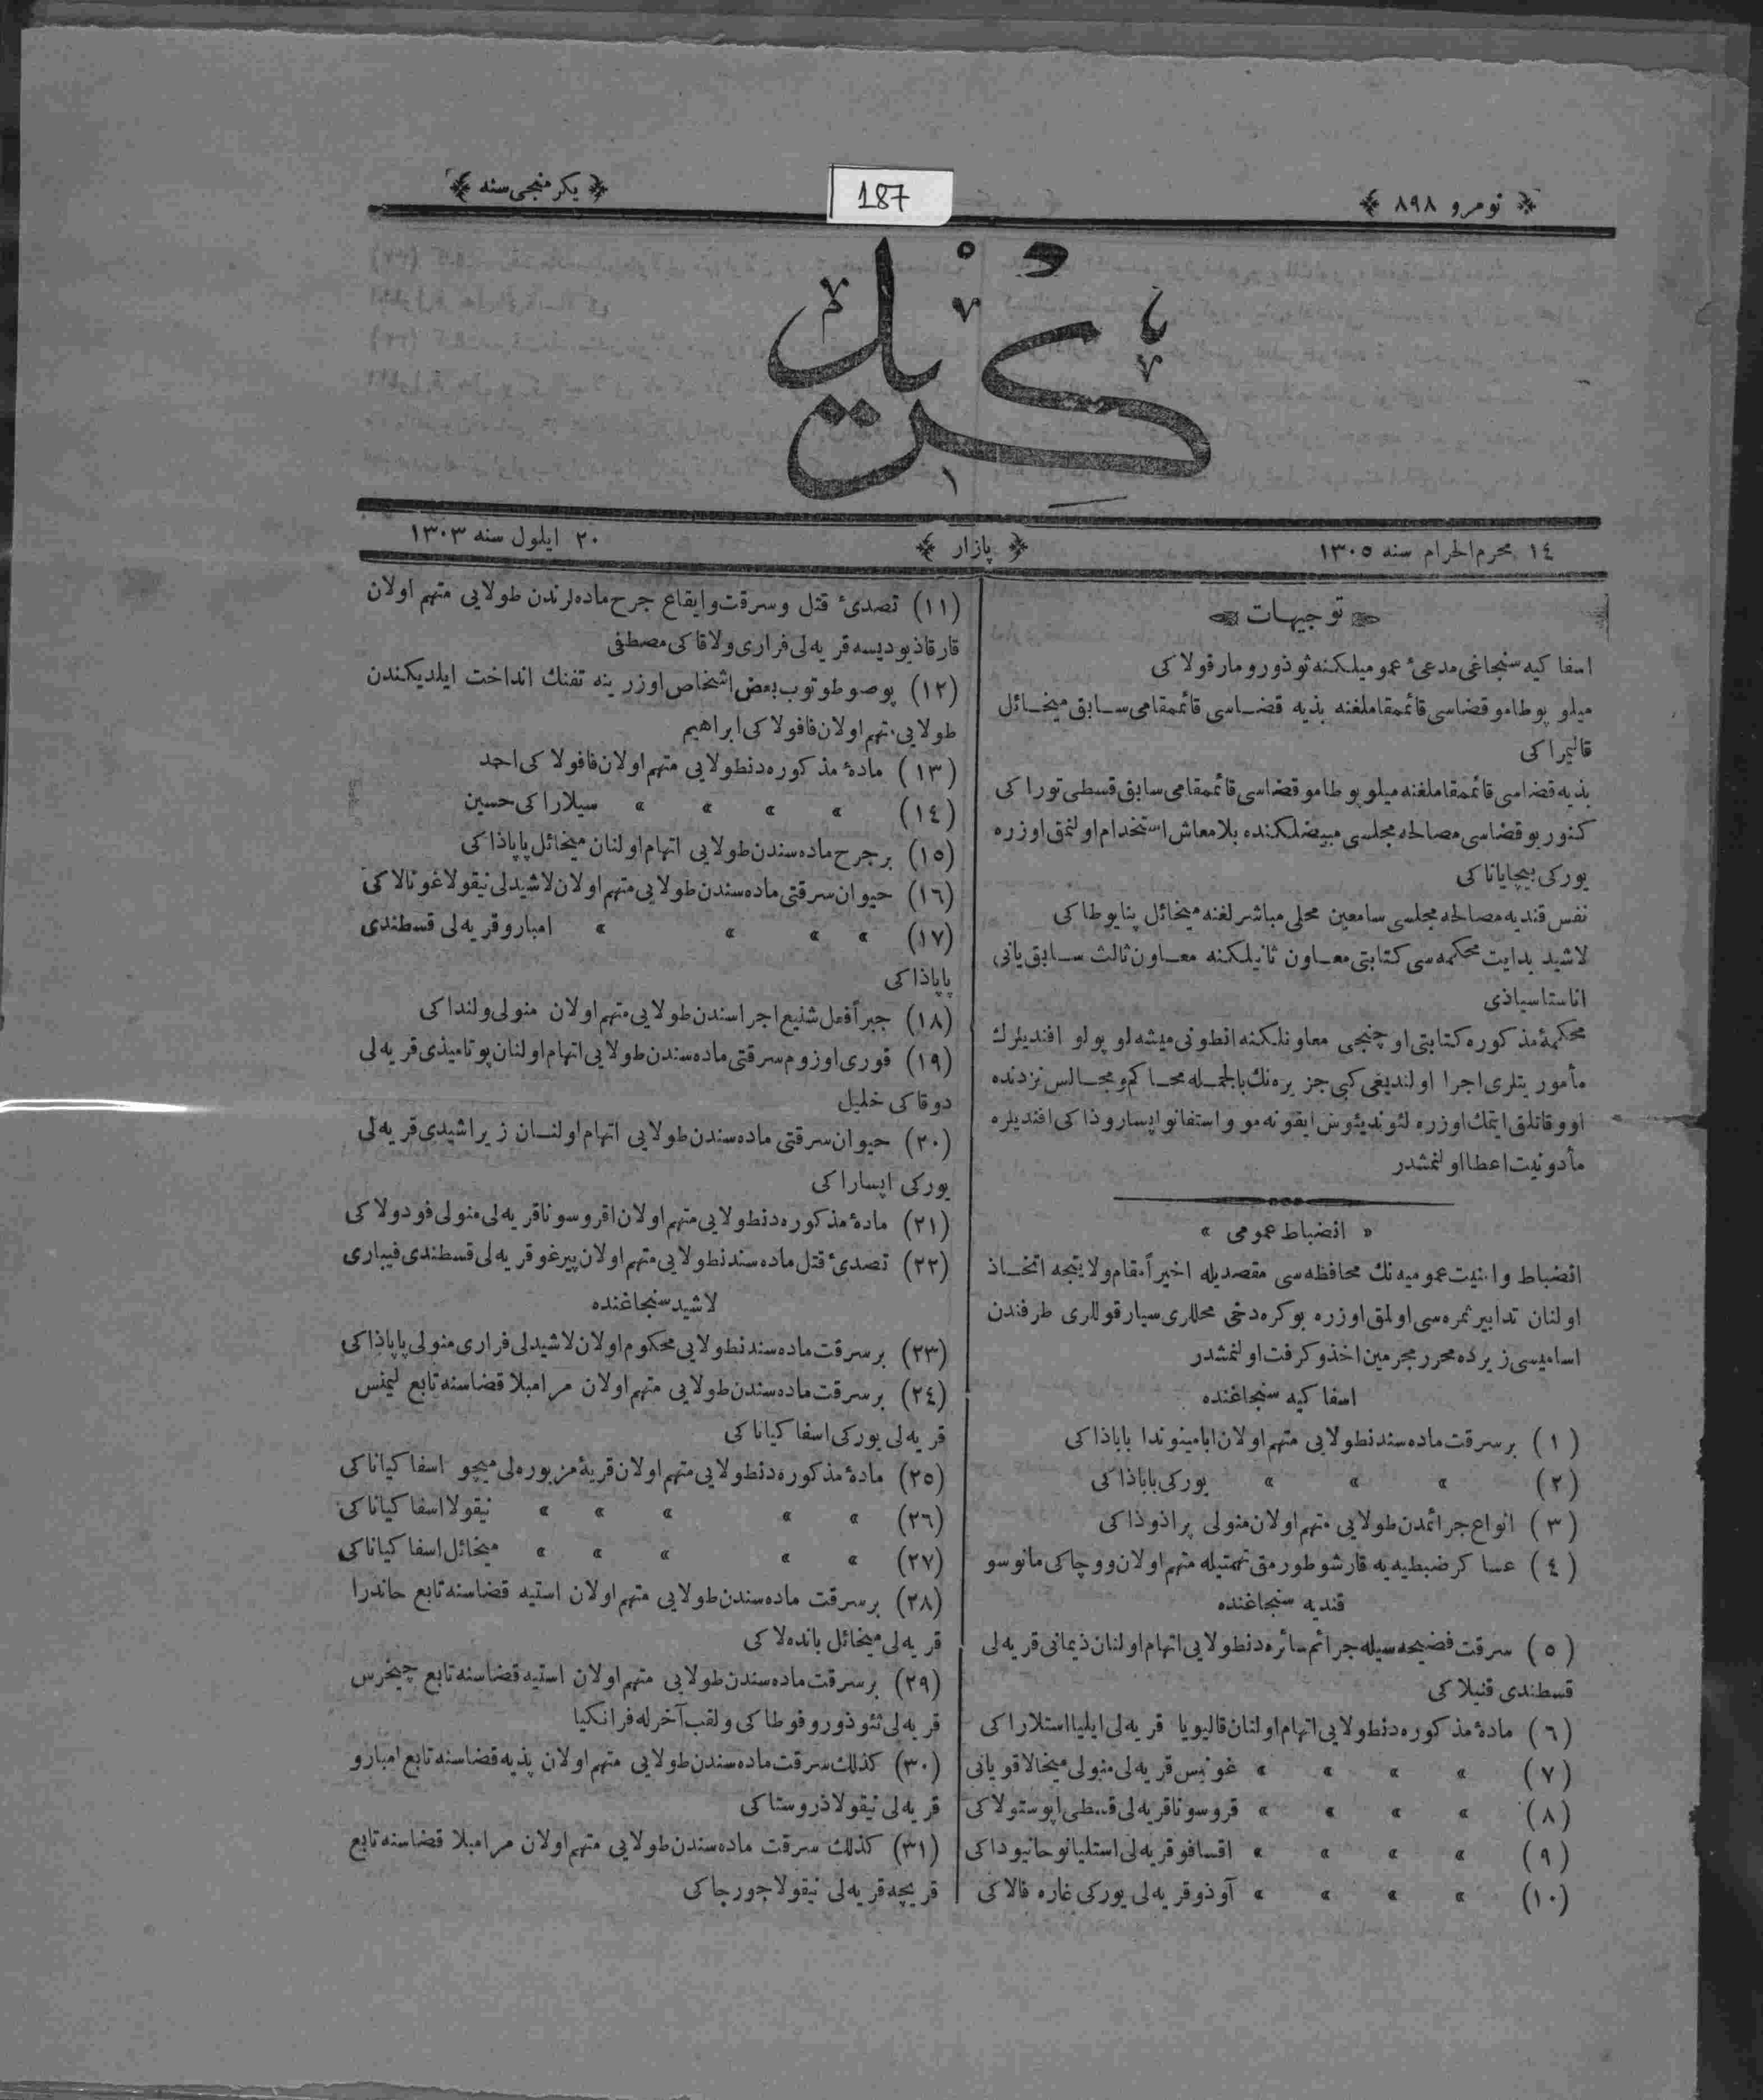 نومرو ٨٩٨
187
يكرمنجى سنه
كريد
١٤ محرم الحرام سنه ١٣٠٥
پازار
٢٠ ايلول سنه ١٣٠٣
توجيهات
اسفاكيه سنجاغى مدعئ عموميلكنه ثوذورو مارقولاكى
ميلوپوطامو قضاسى قائممقاملغنه پذيه قضاسى قائممقامى سابق ميخائل
قاليراكى
پذيه قضاسى قائممقاملغنه ميلوپوطامو قضاسى قائممقامى سابق قسطى توراكى
كنوريو قضاسى مصالحه مجلسى مبيضلكنده بلامعاش استخدام اولنمق اوزره
يوركى بيچاياناكى
نفس قنديه مصالحه مجلسى سامعين محلى مباشرلغنه ميخائل پنايوطاكى
لاشيد بدايت محكمه سى كتابتى معاون ثانيلكنه معاون ثالث سابق يانى
اناستاسياذى
محكمۀ مذكوره كتابتى اوچنجى معاونلكنه انطونى ميشه لوپولو افنديلرك
مأموريتلرى اجرا اولنديغى كبى جزيره نك بالجمله محاكم و مجالس نزدنده
اووقاتلق ايتمك اوزره لئونديئوس ايقونه مو و استفانو اپساروذاكى افنديلره
مأذونيت اعطا اولنمشدر
« انضباط عمومى »
انضباط وامنيت عموميه نك محافظه سى مقصديله اخيراً مقام ولايتجه اتخاذ
اولنان تدابير ثمره سى اولمق اوزره بوكره دخى محللرى سيار قوللرى طرفندن
اساميسى زيرده محرر مجرمين اخذوكرفت اولنمشدر
اسفاكيه سنجاغنده
(١) برسرقت ماده سندنطولايى متهم اولان ابامينوندا باباذاكى
(٢) « « « يوركى باباذاكى
(٣) انواع جرائمدن طولايى متهم اولان منولى پراذوذاكى
(٤) عساكر ضبطيه يه قارشو طورمق تهمتيله متهم اولان ووچاكى مانوسو
قنديه سنجاغنده
(٥) سرقت فضيحه سيله جرائم سائره دنطولايى اتهام اولنان ذيمانى قريه لى
قسطندى قنيلاكى
(٦) مادۀ مذكوره دنطولايى اتهام اولنان قاليويا قريه لى ايليا استلاراكى
(٧) « « « « غونيس قريه لى منولى ميخالاقويانى
(٨) « « « « قروسونا قريه لى قسطى اپوستولاكى
(٩) « « « « اقسافو قريه لى استليانو حانيوداكى
(١٠) « « « « آوذو قريه لى يوركى غاره فالاكى
(١١) تصدئ قتل وسرقت وايقاع جرح ماده لرندن طولايى متهم اولان
قارقاذيوديسه قريه لى فرارى ولاقاكى مصطفى
(١٢) پوصو طوتوب بعض اشخاص اوزرينه تفنك انداخت ايلديكندن
طولايى متهم اولان فافولاكى ابراهيم
(١٣) مادۀ مذكوره دنطولايى متهم اولان فافولاكى احمد
(١٤) « « « « سيلاراكى حسين
(١٥) برجرح ماده سندن طولايى اتهام اولنان ميخائل پاپاذاكى
(١٦) حيوان سرقتى ماده سندن طولايى متهم اولان لاشيدلى نيقولا غونالاكى
(١٧) « « « « امبارو قريه لى قسطندى
پاپاذاكى
(١٨) جبراً فعل شنيع اجراسندن طولايى متهم اولان منولى ولنداكى
(١٩) قورى اوزوم سرقتى ماده سندن طولايى اتهام اولنان پوتاميذى قريه لى
دوقاكى خليل
(٢٠) حيوان سرقتى ماده سندن طولايى اتهام اولنان زيراشيدى قريه لى
يوركى اپساراكى
(٢١) مادۀ مذكوره دنطولايى متهم اولان اقروسونا قريه لى منولى فودولاكى
(٢٢) تصدئ قتل ماده سندنطولايى متهم اولان پيرغو قريه لى قسطندى فيبارى
لاشيد سنجاغنده
(٢٣) برسرقت ماده سندنطولايى محكوم اولان لاشيدلى فرارى منولى پاپاذاكى
(٢٤) برسرقت ماده سندن طولايى متهم اولان مرامبلا قضاسنه تابع ليمنس
قريه لى يوركى اسفاكياناكى
(٢٥) مادۀ مذكوره دنطولايى متهم اولان قريۀ مزبوره لى ميچو اسفاكياناكى
(٢٦) « « « « « نيقولا اسفاكياناكى
(٢٧) « « « « « ميخائل اسفاكياناكى
(٢٨) برسرقت ماده سندن طولايى متهم اولان استيه قضاسنه تابع حاندرا
قريه لى ميخائل بانده لاكى
(٢٩) برسرقت ماده سندن طولايى متهم اولان استيه قضاسنه تابع چيخرس
قريه لى ثئوذورو فوطاكى ولقب آخرله فرانكيا
(٣٠) كذلك سرقت ماده سندن طولايى متهم اولان پذيه قضاسنه تابع امبارو
قريه لى نيقولا ذروستاكى
(٣١) كذلك سرقت ماده سندن طولايى متهم اولان مرامبلا قضاسنه تابع
قريچه قريه لى نيقولا جورجاكى